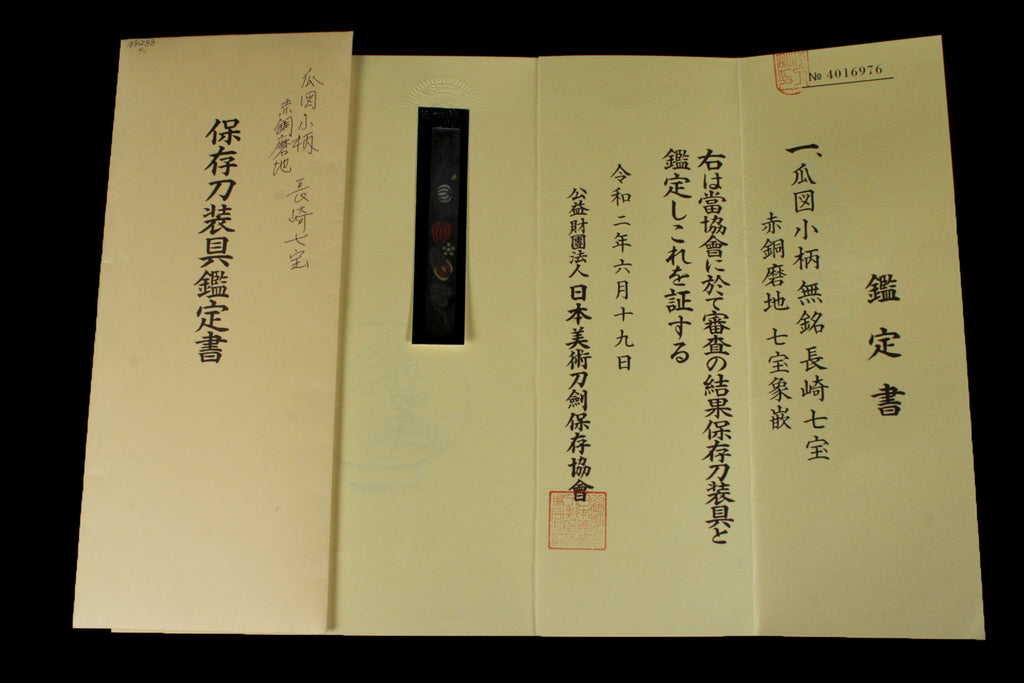 № 4016976
鑑定書
一、瓜図小柄 無銘 長崎七宝
赤銅磨地 七宝象嵌
右は當協會に於て審査の結果保存刀装具と
鑑定しこれを証する
令和二年六月十九日
公益財團法人 日本美術刀劍保存協會
瓜図小柄 長崎七宝
赤銅磨地
保存刀装具鑑定書